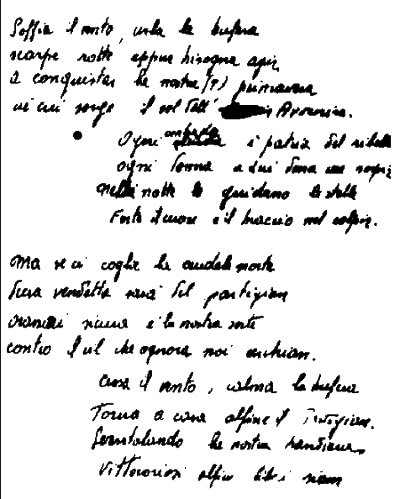 Soffia il vento, urla la bufera
scarpe rotte eppur bisogna agir
a conquistar la nostra (?) primavera
in cui sorge il sol dell' Avvenire.
Ogni contrada è patria del ribelle
ogni donna a lui dona un sospir
Nella notte lo guidano le stelle
Forte il cuore e il braccio nel colpir.
Ma se ci coglie la crudele morte
dura vendetta sarà del partigian
ormai sicura è la nostra sorte
contro il vil che ognora noi cerchiam.
Cessa il vento, calma la bufera
Torna a casa alfine il Partigiano.
Sventolando la nostra bandiera
Vittoriosi alfin liberi siam